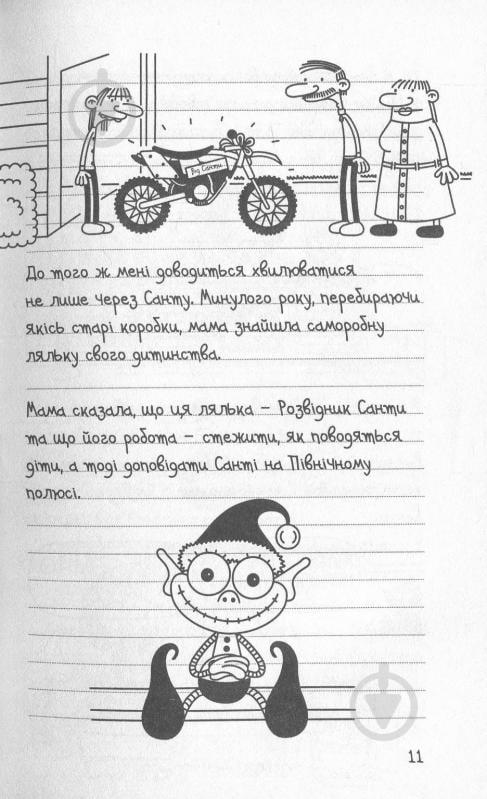 Від Санти
До того ж мені доводиться хвилюватися
не лише через Санту. Минулого року, перебираючи
якісь старі коробки, мама знайшла саморобну
ляльку свого дитинства.
Мама сказала, що ця лялька – Розвідник Санти
та що його робота – стежити, як поводяться
діти, а тоді доповідати Санті на Північному
полюсі.
11